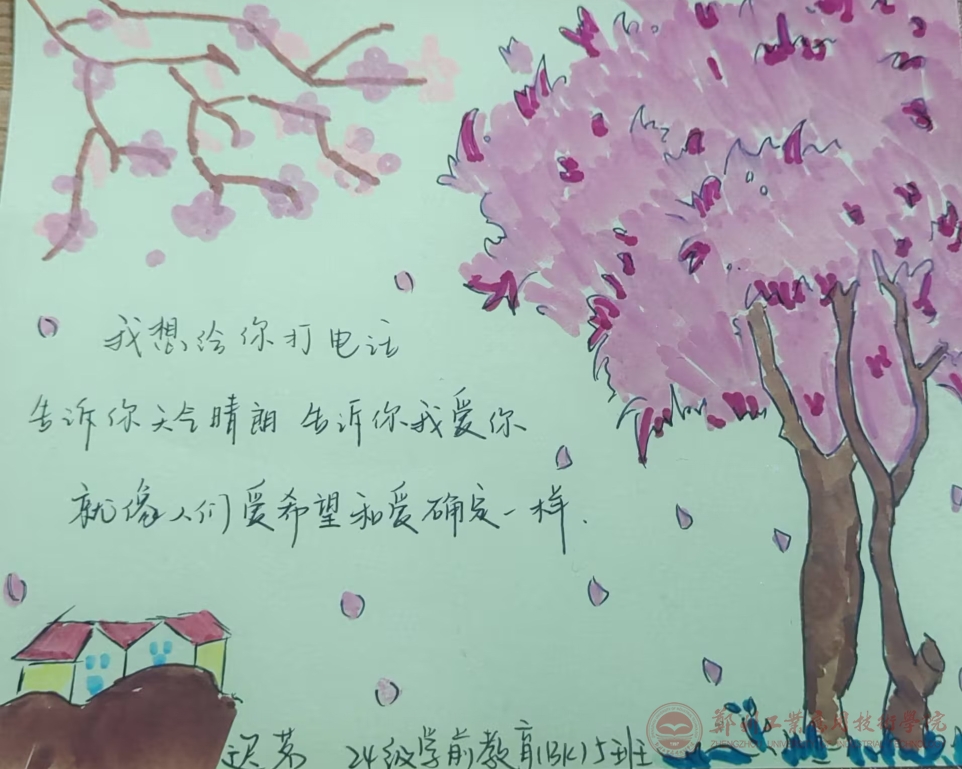 我想给你打电话
告诉你天气晴朗 告诉你我爱你
就像人们爱希望和爱确定一样.
24级学前教育(BK)5班
郑州工业应用技术学院